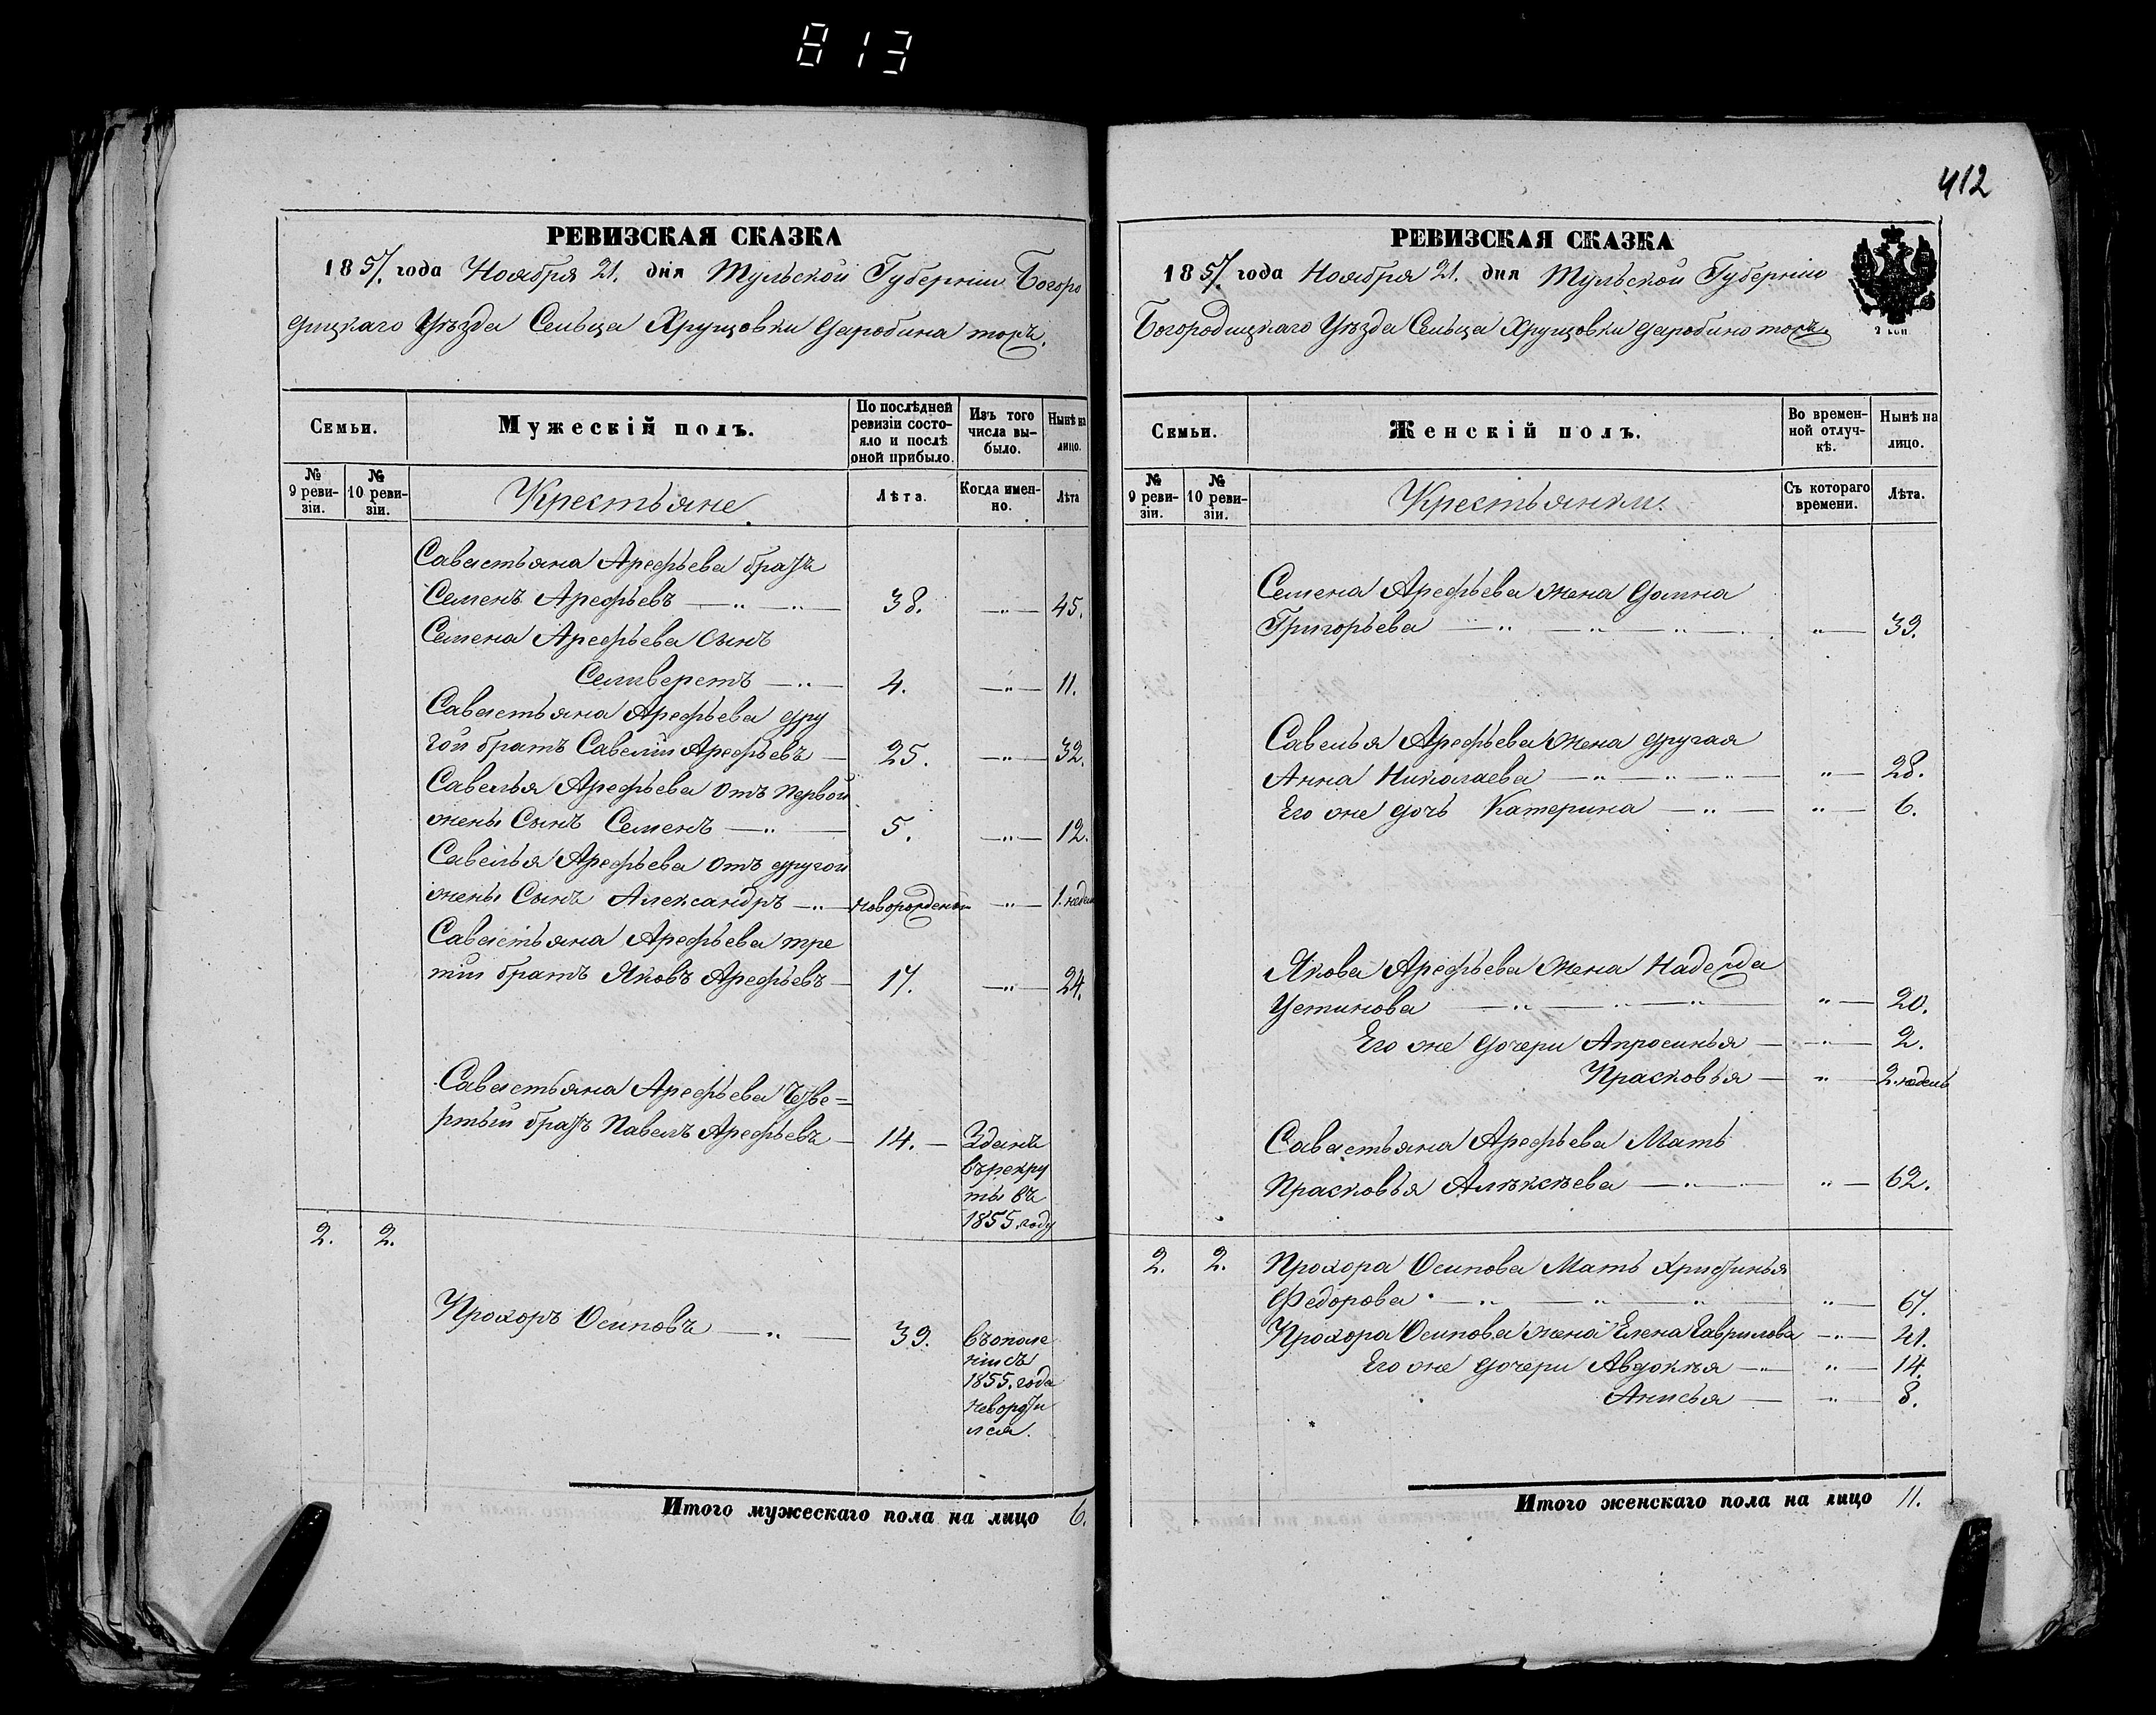 813
РЕВИЗСКАЯ СКАЗКА
1857. года Ноября 21. дня Тульской Губернiи Богоро
дицкаго Уѣзда Сельца Хрущовки Даробина тожъ.
Семьи.
Мужескiй полъ.
По послѣдней ревизiи состояло и послѣ оной прибыло.
Изъ того числа выбыло.
Нынѣ на лицо.
№ 9 ревизiи.
№ 10 ревизiи.
Крестьяне.
Лѣта.
Когда именно.
Лѣта
Савастьяна Арефьева братъ
Семенъ Арефьевъ — 38. — 45.
Семена Арефьева Сынъ
Селиверстъ — 4. — 11.
Савастьяна Арефьева дру
гой братъ Савелiй Арефьевъ — 25. — 32.
Савелья Арефьева отъ первой
жены Сынъ Семенъ — 5. — 12.
Савелья Арефьева отъ другой
жены Сынъ Александръ — новорожденый — 1. недели
Савастьяна Арефьева тре
тiй братъ Яковъ Арефьевъ — 17. — 24.
Савастьяна Арефьева Четве=
ртый братъ Павелъ Арефьевъ — 14. — Зданъ
въ рекру
ты въ
1855. году
2. 2.
Прохоръ Осиповъ — 39.
въ ополче
нiи съ
1855. года
неворoти
лся.
Итого мужескаго пола на лицо 6.
412
РЕВИЗСКАЯ СКАЗКА
1857. года Ноября 21. дня Тульской Губернiи
Богородицкаго Уѣзда Сельца Хрущовки Даробино тожъ.
Семьи.
Женскiй полъ.
Во временной отлучкѣ.
Нынѣ на лицо.
№ 9 ревизiи.
№ 10 ревизiи.
Крестьянки.
Съ котораго времени.
Лѣта.
Семена Арефьева жена Домна
Григорьева — 39.
Савелья Арефьева жена другая
Анна Николаева — 28.
Его же дочь Катерина — 6.
Якова Арефьева жена Надежда
Устинова — 20.
Его же дочери Апросинья — 2.
Прасковья — 2. недель
Савастьяна Арефьева Мать
Прасковья Алѣксѣева — 62.
2. 2. Прохора Осипова Мать Христинья
Федорова — 67.
Прохора Осипова жена Елена Гаврилова — 41.
Его же дочери Авдокѣя — 14.
Анисья — 8.
Итого женскаго пола на лицо 11.